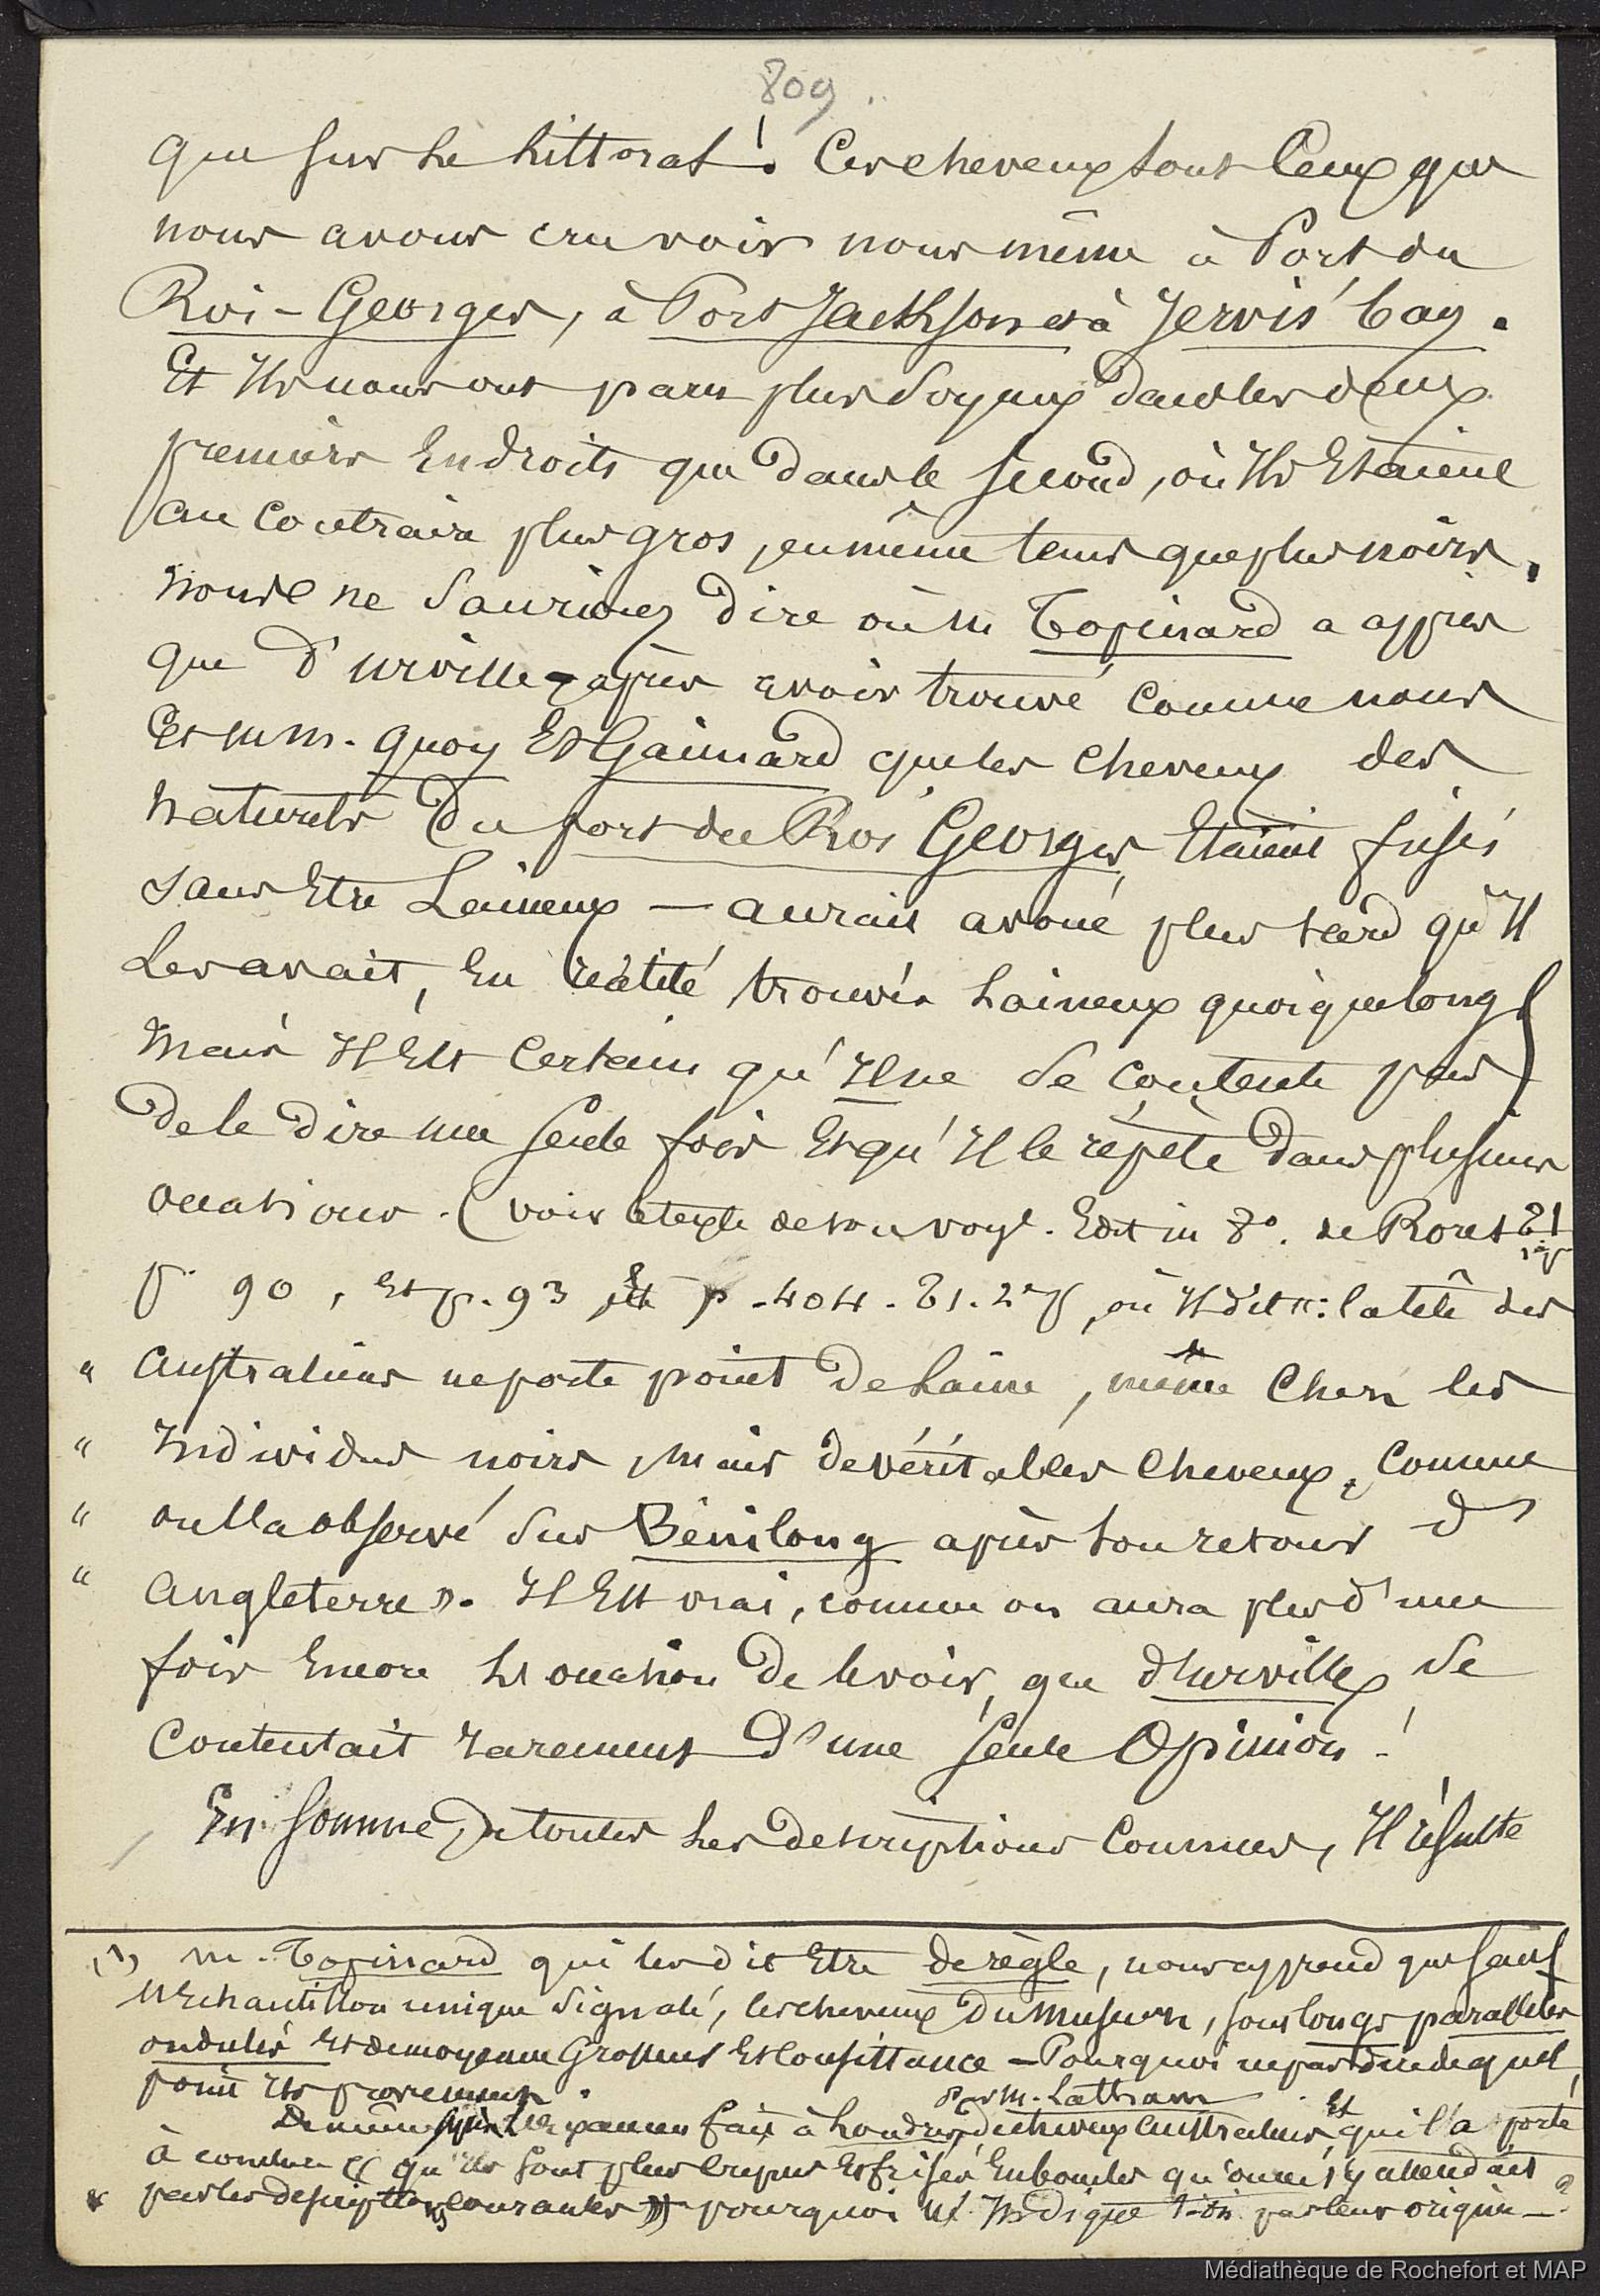 809
que sur le littoral ! Ces cheveux sont ceux que
nous avons cru voir nous même à Port du
Roi-Georges, à Port Jackson et à Jervis' bay.
Et Ils nous ont paru plus soyeux dans les deux
premiers Endroits que dans le second, où Ils Etaient
au contraire plus gros, en même tems que plus noirs.
nous ne saurions dire où M Topinard a appris
que d'urville – après avoir trouvé comme nous
Et mm. Quoy Et Gaimard que les cheveux des
naturels du port du Roi Georges, Etaient frisés
sans Etre Laineux — aurait avoué plus tard qu'Il
Les avait, En réalité trouvés Laineux quoique longs
mais Il Est Certain qu'Il ne se contente pas
de le dire une seule fois Et qu'Il le répète dans plusieurs
occasions. (voir le texte de son voye. Edit in 8o. de Roret T1
p. 90, Et p. 93 Et p. 404. T1. 2e p, où Il dit « : la tête des
" australiens ne porte point de Laine, même Chez les
" Individus noirs, mais de véritables Cheveux, Comme
" on l'a observé sur Bénilong après son retour d'
" angleterre ». Il Est vrai, comme on aura plus d'une
fois Encore L'occasion de le voir, que d'urville se
contentait rarement d'une seule Opinion !
En somme, de toutes Les descriptions connues, Il résulte
(1) m. Topinard qui les dit Etre de règle, nous apprend que sauf
un Echantillon unique signalé, les cheveux du museum, sont longs parallèles
ondulés et de moyenne Grosseur Et Consistance – Pourquoi ne pas dire de quel
point Ils proviennent.
De même après l'Examen fait à Londres par M. Latham de cheveux australiens, Et qui l'a porté
à conclure « qu'ils sont plus crépus Et frisés En boucles qu'on ne s'y attendait
par les descriptions courantes » pourquoi n'Indique t-on pas leur origine — ?
Médiathèque de Rochefort et MAP